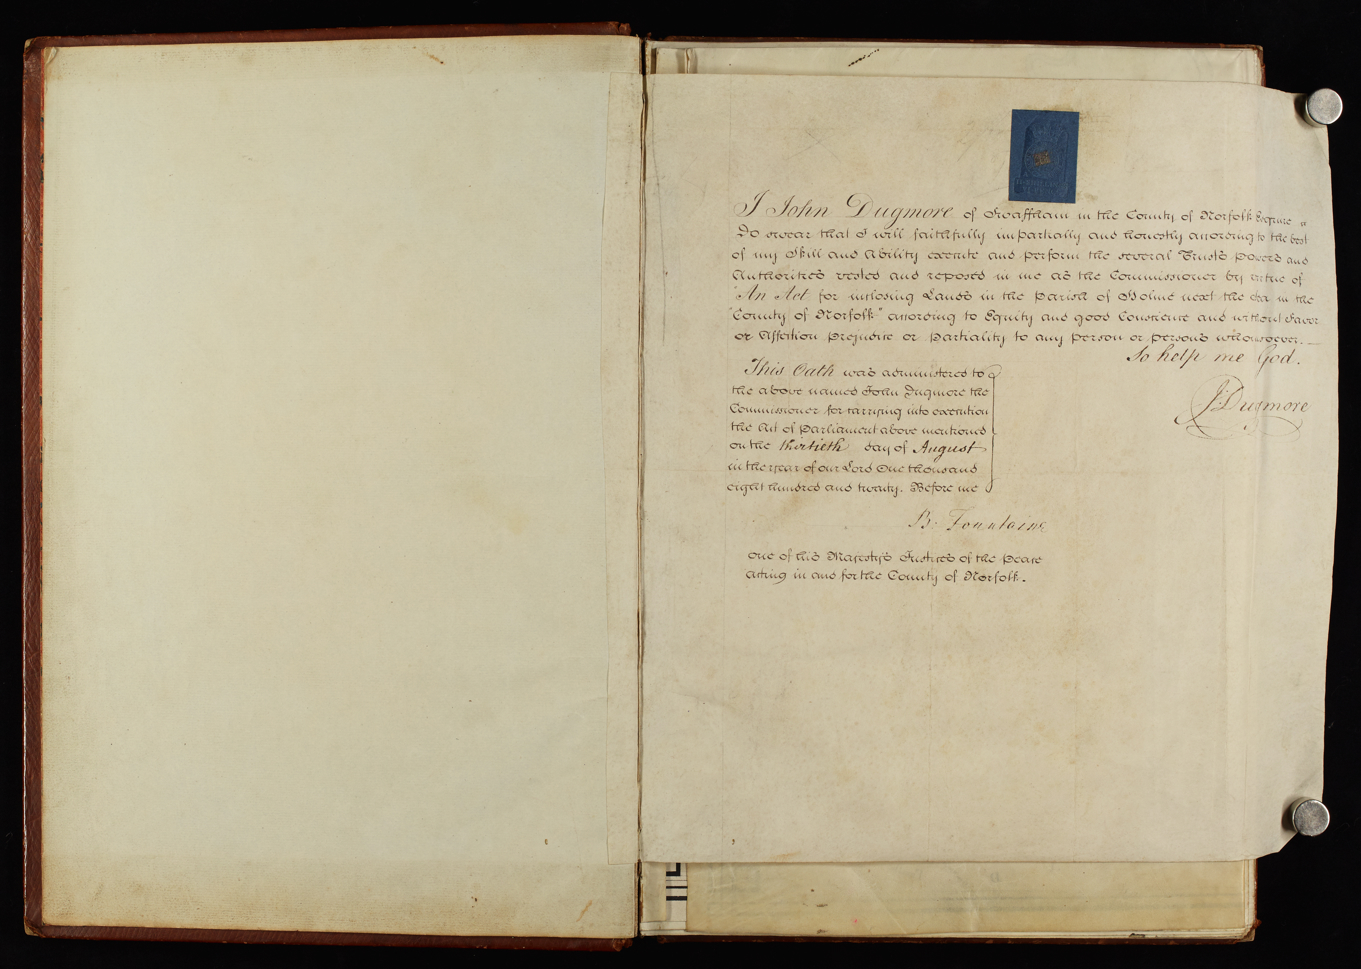 I John Dugmore of Swaffham in the County of Norfolk Esquire
Do swear that I will faithfully impartially and honestly according to the best
of my Skill and Ability execute and perform the several Trusts powers and
Authorities vested and reposed in me as the Commissioner by virtue of
"An Act for inclosing Lands in the Parish of Holme next the Sea in the
"County of Norfolk" according to Equity and good Conscience and without Favor
or Affection Prejudice or Partiality to any person or persons whomsoever.
So help me God.
J: Dugmore
This Oath was administered to
the above named John Dugmore the
Commissioner for carrying into execution
the Act of Parliament above mentioned
on the thirtieth day of August
in the year of our Lord One thousand
eight hundred and twenty. Before me
B: Fountaine
One of his Majesty's Justices of the Peace
acting in and for the County of Norfolk.